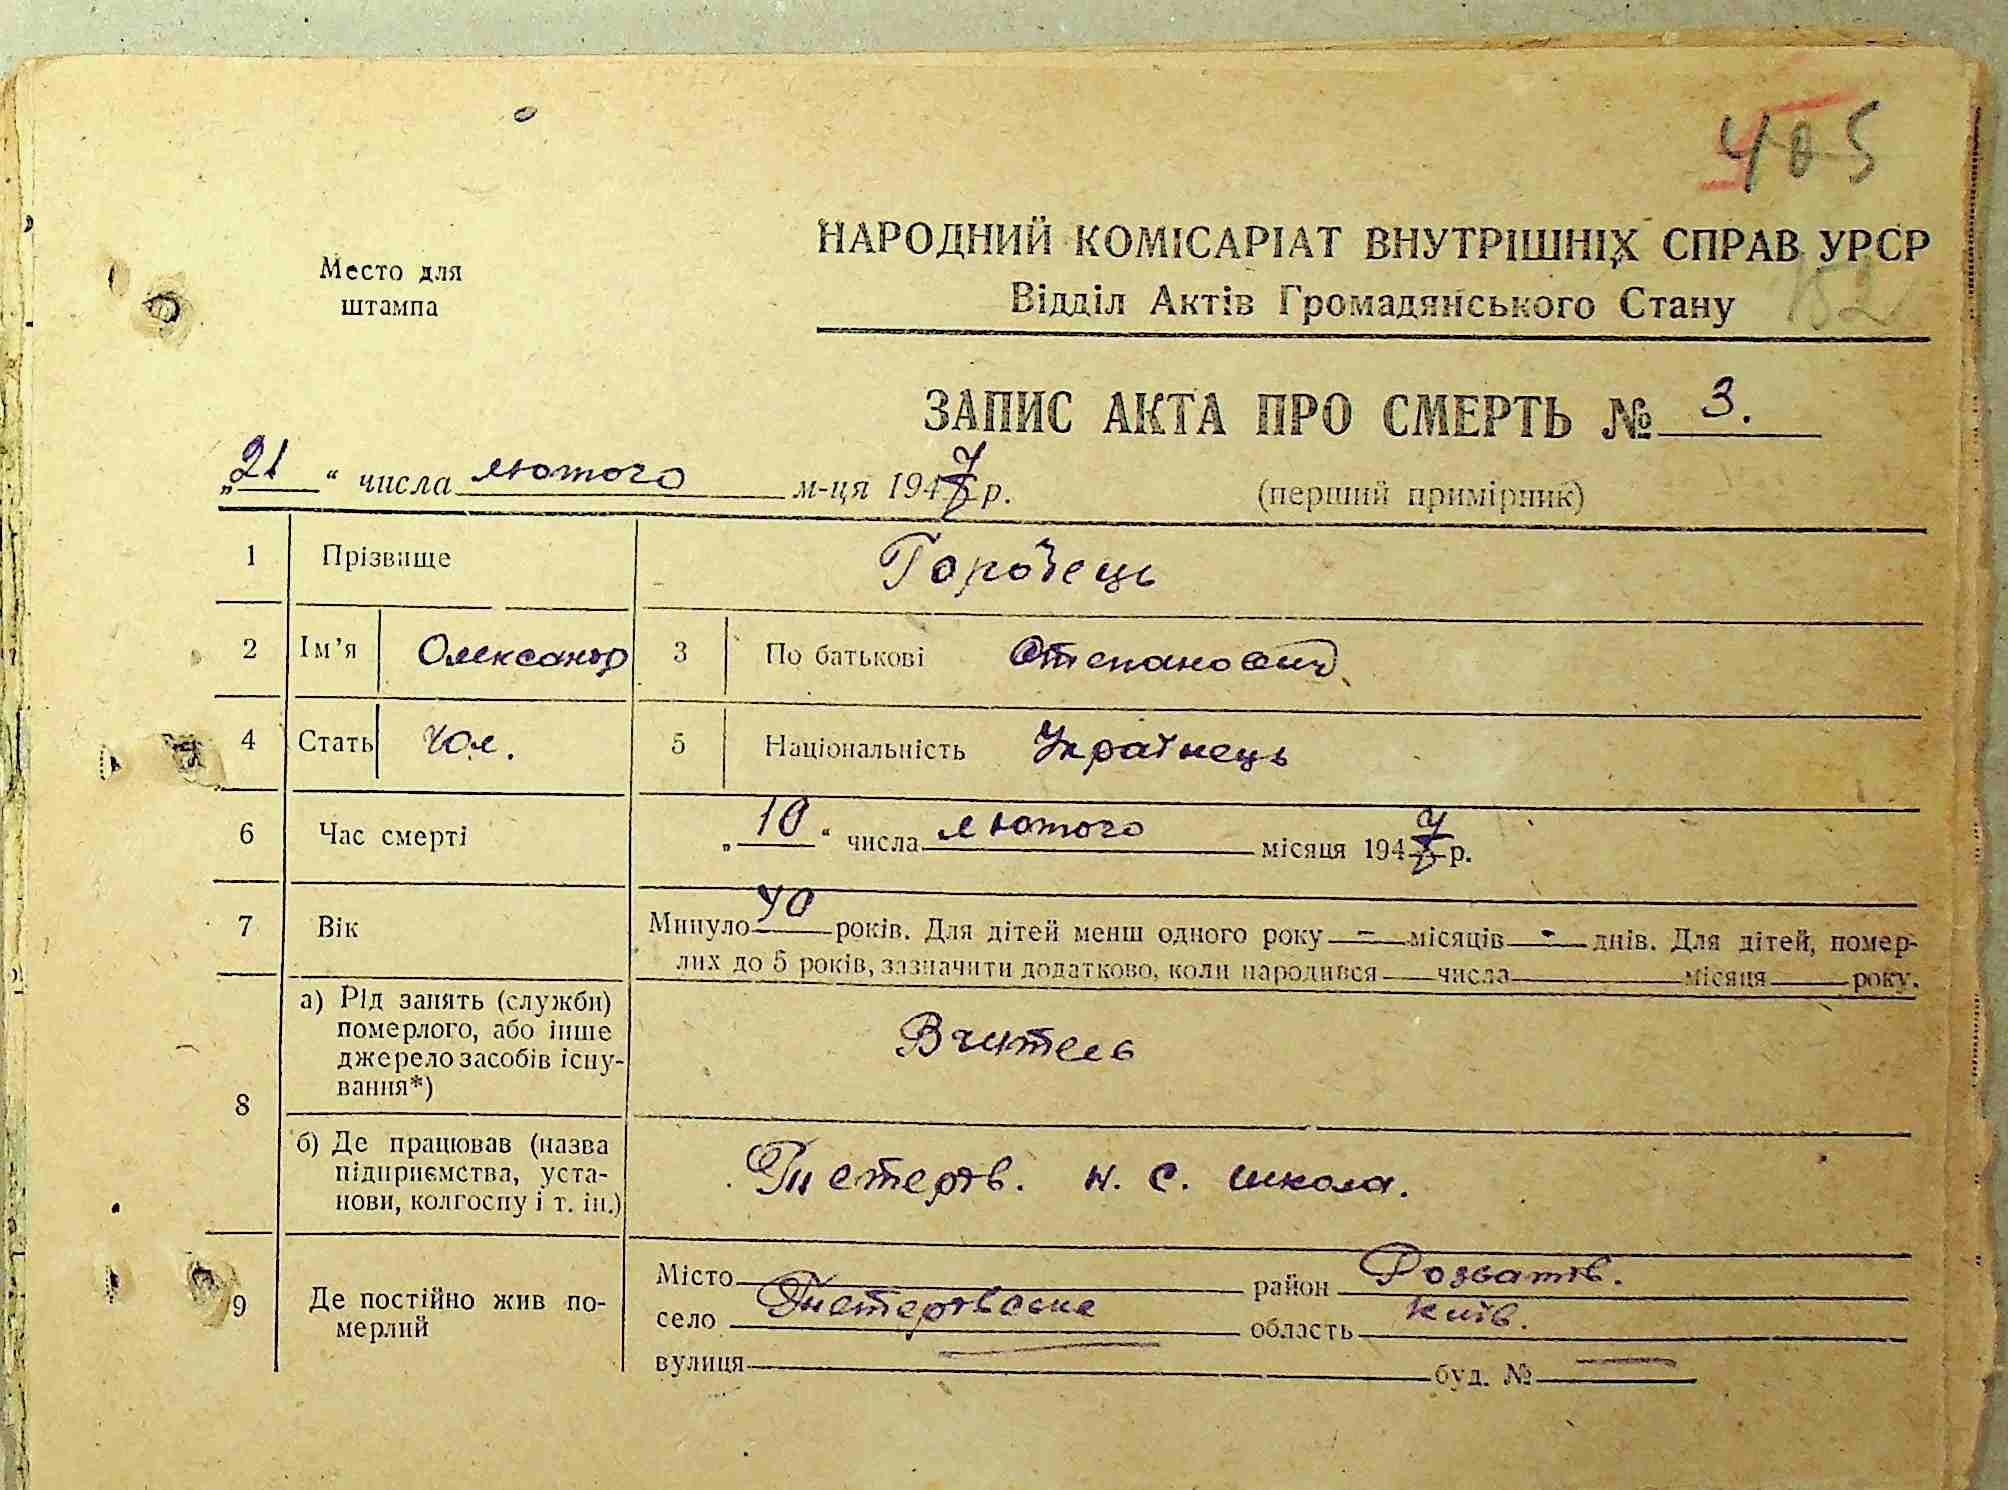 405
НАРОДНИЙ КОМІСАРІАТ ВНУТРІШНІХ СПРАВ УРСР
Место для штампа
Відділ Актів Громадянського Стану
182
ЗАПИС АКТА ПРО СМЕРТЬ № 3.
„21“ числа лютого м-ця 1947 р. (перший примірник)
1 Прізвище
2 Ім’я Олександр 3 По батькові Степанович
4 Стать Чол. 5 Національність Українець
6 Час смерті „10“ числа лютого місяця 1947 р.
7 Вік Минуло 40 років. Для дітей менш одного року - місяців - днів. Для дітей, помер-
лих до 5 років, зазначити додатково, коли народився числа місяця року.
8 а) Рід занять (служби) померлого, або інше джерело засобів існу-вання*) Вчитель
б) Де працював (назва підприємства, уста-нови, колгоспу і т. ін.) н. с. школа.
9 Де постійно жив по-мерлий
Місто район Розважів.
село область Київ.
вулиця буд. №